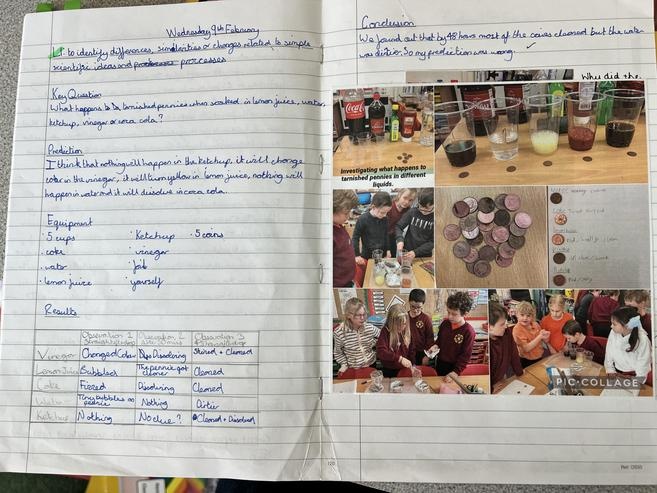 Wednesday 9th February
LI: to identify differences, similarities or changes related to simple
scientific ideas and processes
Key Question
What happens to tarnished pennies when soaked in lemon juice, water,
ketchup, vinegar or coca cola?
Prediction
I think that nothing will happen in the ketchup, it will change
color in the vinegar, it will turn yellow in lemon juice, nothing will
happen in water and it will dissolve in coca cola.
Equipment
·5 cups ·Ketchup ·5 coins
·coke ·vinegar
·water
·lemon juice yourself
Results
Observation 1 Observation 2 Observation 3
Vinegar Changed Colour Dissolving Shined + Cleaned
Lemon Juice Bubbles The pennie got cleaner Cleaned
Coke Fizzed Dissolving Cleaned
Water Tiny bubbles on pennie Nothing Dirtier
Ketchup Nothing No clue? Cleaned + Dissolved
120
Conclusion
We found out that by 48 hours most of the coins cleaned but the water
was dirtier. So my prediction was wrong.
Why did the
Coca-Cola
Investigating what happens to
tarnished pennies in different
liquids.
PIC•COLLAGE